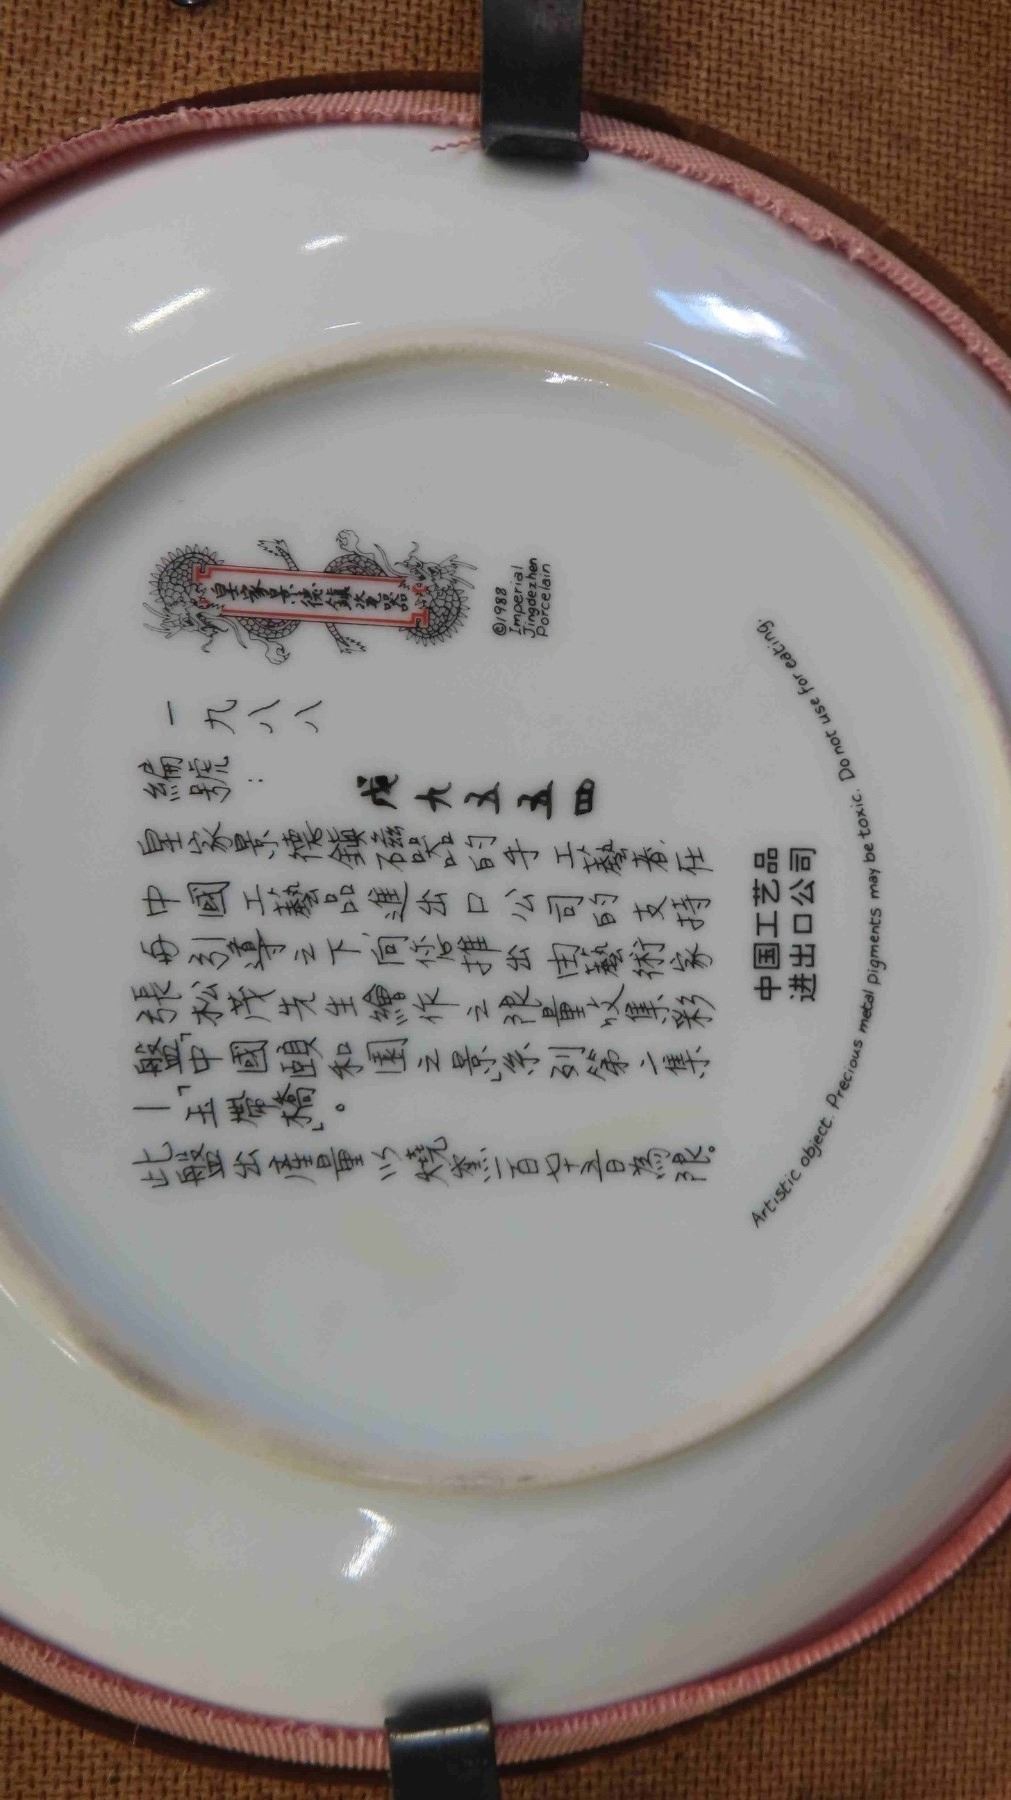 皇家景德鎮瓷器
©1988
Imperial
Jingdezhen
Porcelain
一九八八
編號: 戊九五五四
皇家景德鎮磁器的手工藝者在
中國工藝品進出口公司的支持
与引導之下向您推出由藝術家
張松茂先生繪作之限量收集彩
盤「中國頤和園之景」系列第二集
—「玉帶橋」。
此盤出產量以燒窯一百七十五日為限。
中国工艺品
进出口公司
Artistic object. Precious metal pigments may be toxic. Do not use for eating.